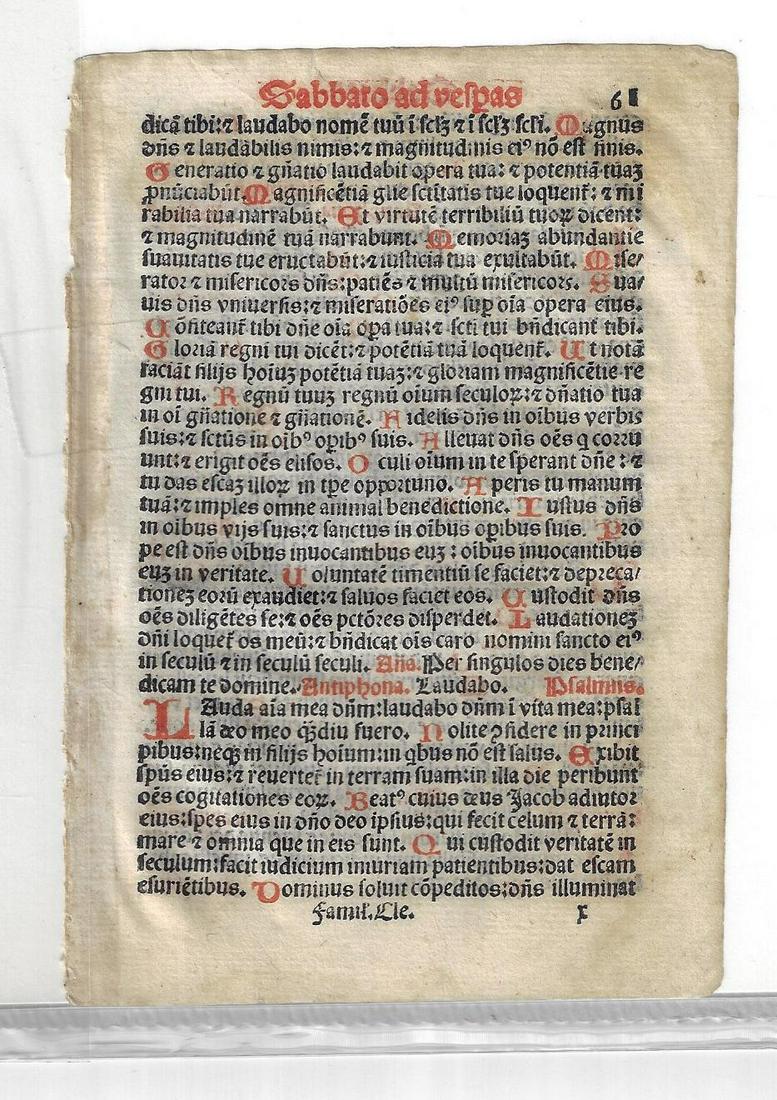 Sabbato ad vesꝑas 61
dicā tibi:⁊ laudabo nomē tuū ī sclꝫ ⁊ ī sclꝫ scli. Magnus
dn̄s ⁊ laudabilis nimis:⁊ magnitudinis ei⁹ nō est finis.
Generatio ⁊ gn̄atio laudabit opera tua:⁊ potentiā tuaꝫ
ꝓnūciabūt. Magnificētiā glīe sctītatis tue loquent᷑:⁊ mi
rabilia tua narrabūt. Et virtutē terribiliū tuoꝝ dicent:
⁊ magnitudinē tuā narrabunt. Memoriaꝫ abundantie
suauitatis tue eructabūt:⁊ iusticia tua exultabūt. Mise/
rator ⁊ misericors dn̄s:patiēs ⁊ multū misericors. Sua/
uis dn̄s vniuersis:⁊ miseratiōes ei⁹ suꝑ oīa opera eius.
Cōfiteant᷑ tibi dn̄e oīa oꝑa tua:⁊ sctī tui bn̄dicant tibi.
Gloriā regni tui dicēt:⁊ potētiā tuā loquent᷑. Ut notā
faciāt filijs hoīuꝫ potētiā tuaꝫ:⁊ gloriam magnificētie re
gni tui. Regnū tuuꝫ regnū oīum seculoꝝ:⁊ dn̄atio tua
in oī gn̄atione ⁊ gn̄ationē. Fidelis dn̄s in oībus verbis
suis:⁊ sctūs in oīb⁹ oꝑib⁹ suis. Alleuat dn̄s oēs q corru
unt:⁊ erigit oēs elisos. Oculi oīum in te sperant dn̄e:⁊
tu das escaꝫ illoꝝ in tꝑe opportuno. Aperis tu manum
tuā:⁊ imples omne animal benedictione. Iustus dn̄s
in oībus vijs suis:⁊ sanctus in oībus oꝑibus suis. Pro
pe est dn̄s oībus inuocantibus euꝫ:oībus inuocantibus
euꝫ in veritate. Uoluntatē timentiū se faciet:⁊ depreca/
tioneꝫ eorū exaudiet:⁊ saluos faciet eos. Custodit dn̄s
oēs diligētes se:⁊ oēs pctōres disperdet. Laudationeꝫ
dn̄i loquet᷑ os meū:⁊ bn̄dicat oīs caro nomini sancto ei⁹
in seculū ⁊ in seculū seculi. Aña. Per singulos dies bene/
dicam te domine. Antiphona. Laudabo. Psalmus.
LAuda aīa mea dn̄m:laudabo dn̄m ī vita mea:psal
lā deo meo qꝫdiu fuero. Nolite ꝯfidere in princi
pibus:neqꝫ in filijs hoīum:in qbus nō est salus. Exibit
spūs eius:⁊ reuertet᷑ in terram suam:in illa die peribunt
oēs cogitationes eoꝝ. Beat⁹ cuius deus Jacob adiutor
eius:spes eius in dn̄o deo ipsius:qui fecit celum ⁊ terrā:
mare ⁊ omnia que in eis sunt. Qui custodit veritatē in
seculum:facit iudicium iniuriam patientibus:dat escam
esuriētibus. Dominus soluit cōpeditos:dn̄s illuminat
Famil. Cle. x